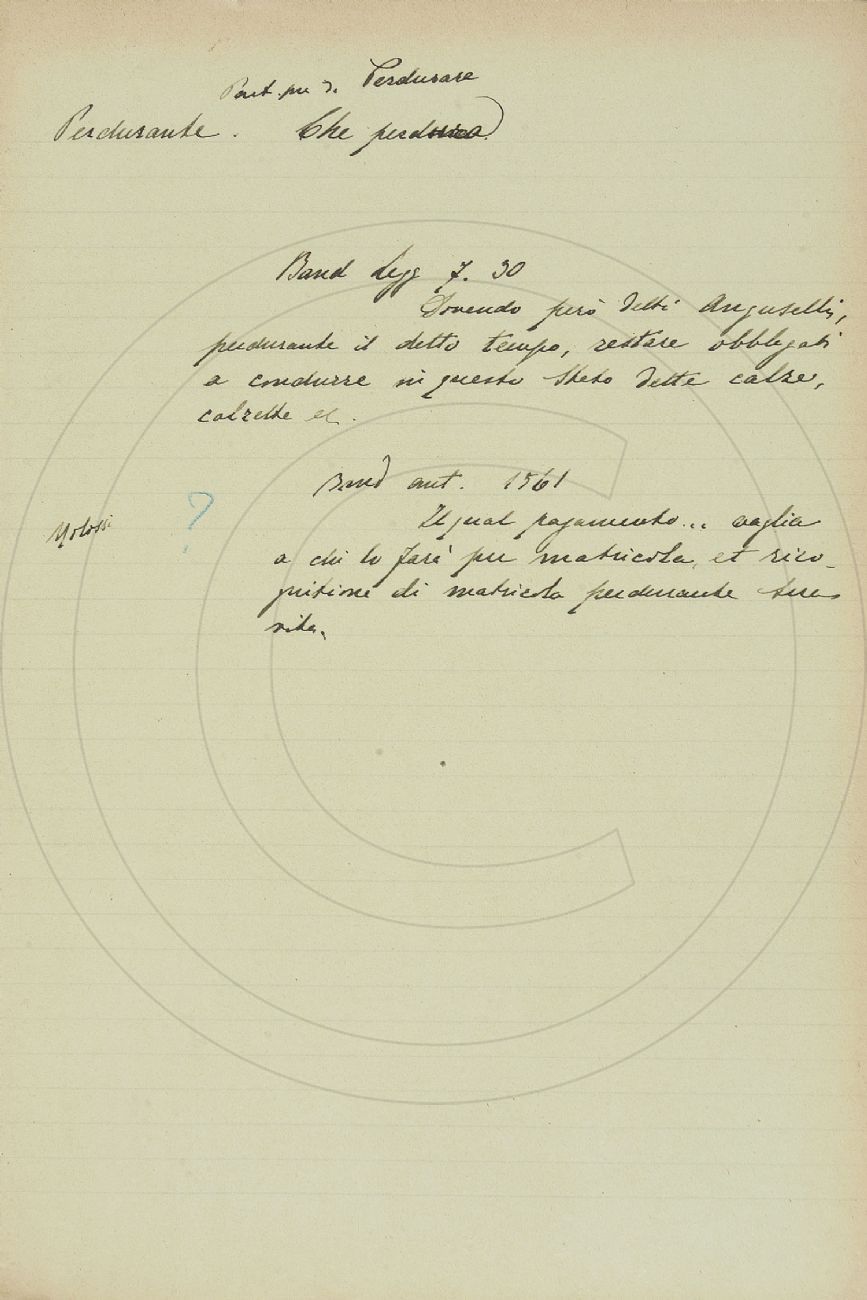 Part. pre di Perdurare
Perdurante. Che perdura
Band Legg 7. 30
Dovendo però detti Anguselli,
perdurante il detto tempo, restare obblegati
a condurre in questo Stato dette calze,
calzette et.
Band ant. 1561
Il qual pagamento... vaglia
Molossi ? a chi lo farà per matricola, et rico-
gnitione di matricola perdurante sua
vita.